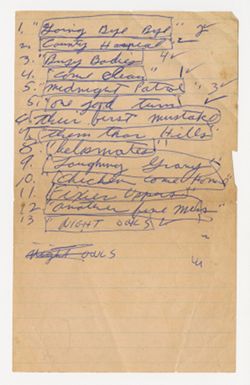 1. "Going Bye Bye" 2
2. County Hospital
3. "Busy Bodies" 4
4. Come Clean
5. "Midnight Patrol" 3
5. One good turn
6 their first mistake
7 them thar Hills
8 "helpmates"
9. Laughing Gravy
10. Chicken come Home
11. Fixer Uppers
12. "Another fine Mess"
13 NIGHT OWLS
Night OWLS